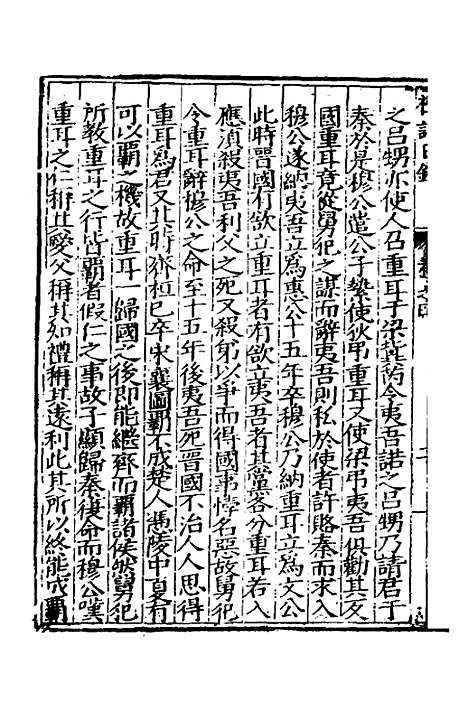 之吕甥亦使人召重耳于梁冀芮令夷吾諾之吕甥乃請君于
秦於是穆公遣公子縶使狄弔重耳又使梁弔夷吾俱勸其反
國重耳竟從舅犯之謀而辭夷吾則私於使者許賂秦而求入
穆公遂納夷吾立爲惠公十五年卒穆公乃納重耳立爲文公
此時晉國有欲立重耳者有欲立夷吾者其黨各分重耳若入
應須殺夷吾利父之死又殺弟以爭而得國事情名惡故舅犯
令重耳辭穆公之命至十五年後夷吾死晉國不治人人思得
重耳爲君又其時齊桓已卒宋襄圖霸不成楚人馮陵中夏有
可以霸之機故重耳一歸國之後即能繼齊而霸諸侯然舅犯
所教重耳之行皆霸者假仁之事故子顯歸秦復命而穆公嘆
重耳之仁稱其愛父稱其知禮稱其遠利此其所以終能成霸